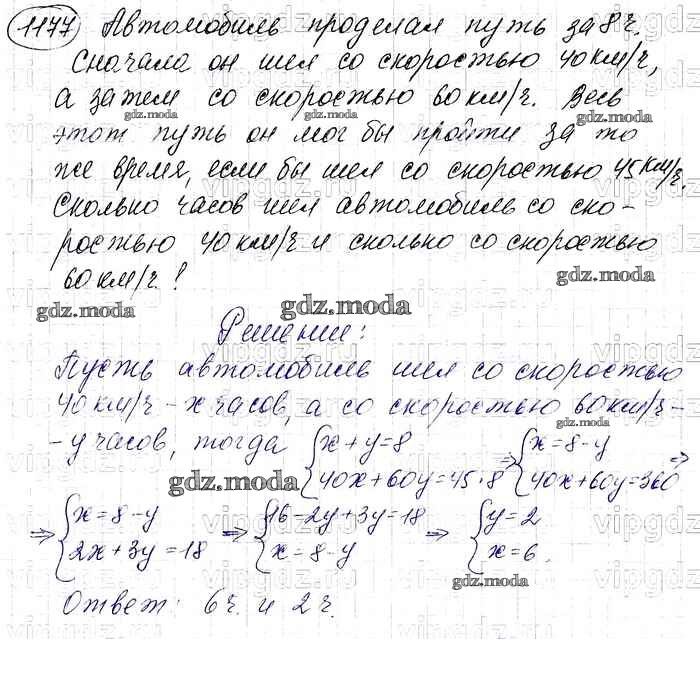 1177 Автомобиль проделал путь за 8 ч.
Сначала он шел со скоростью 40 км/ч,
а затем со скоростью 60 км/ч. Весь
gdz.moda gdz.moda
этот путь он мог бы пройти за то
же время, если бы шел со скоростью 45 км/ч.
Сколько часов шел автомобиль со ско-
ростью 40 км/ч и сколько со скоростью
60 км/ч?
gdz.moda gdz.moda gdz.moda
Решение:
Пусть автомобиль шел со скоростью
40 км/ч - x часов, а со скоростью 60 км/ч -
- y часов, тогда { x + y = 8 ⇒ { x = 8 - y ⇒
gdz.moda
{ 40x + 60y = 45 · 8 { 40x + 60y = 360
gdz.moda
⇒ { x = 8 - y ⇒ { 16 - 2y + 3y = 18 ⇒ { y = 2
{ 2x + 3y = 18 { x = 8 - y { x = 6.
gdz.moda
Ответ: 6 ч. и 2 ч.